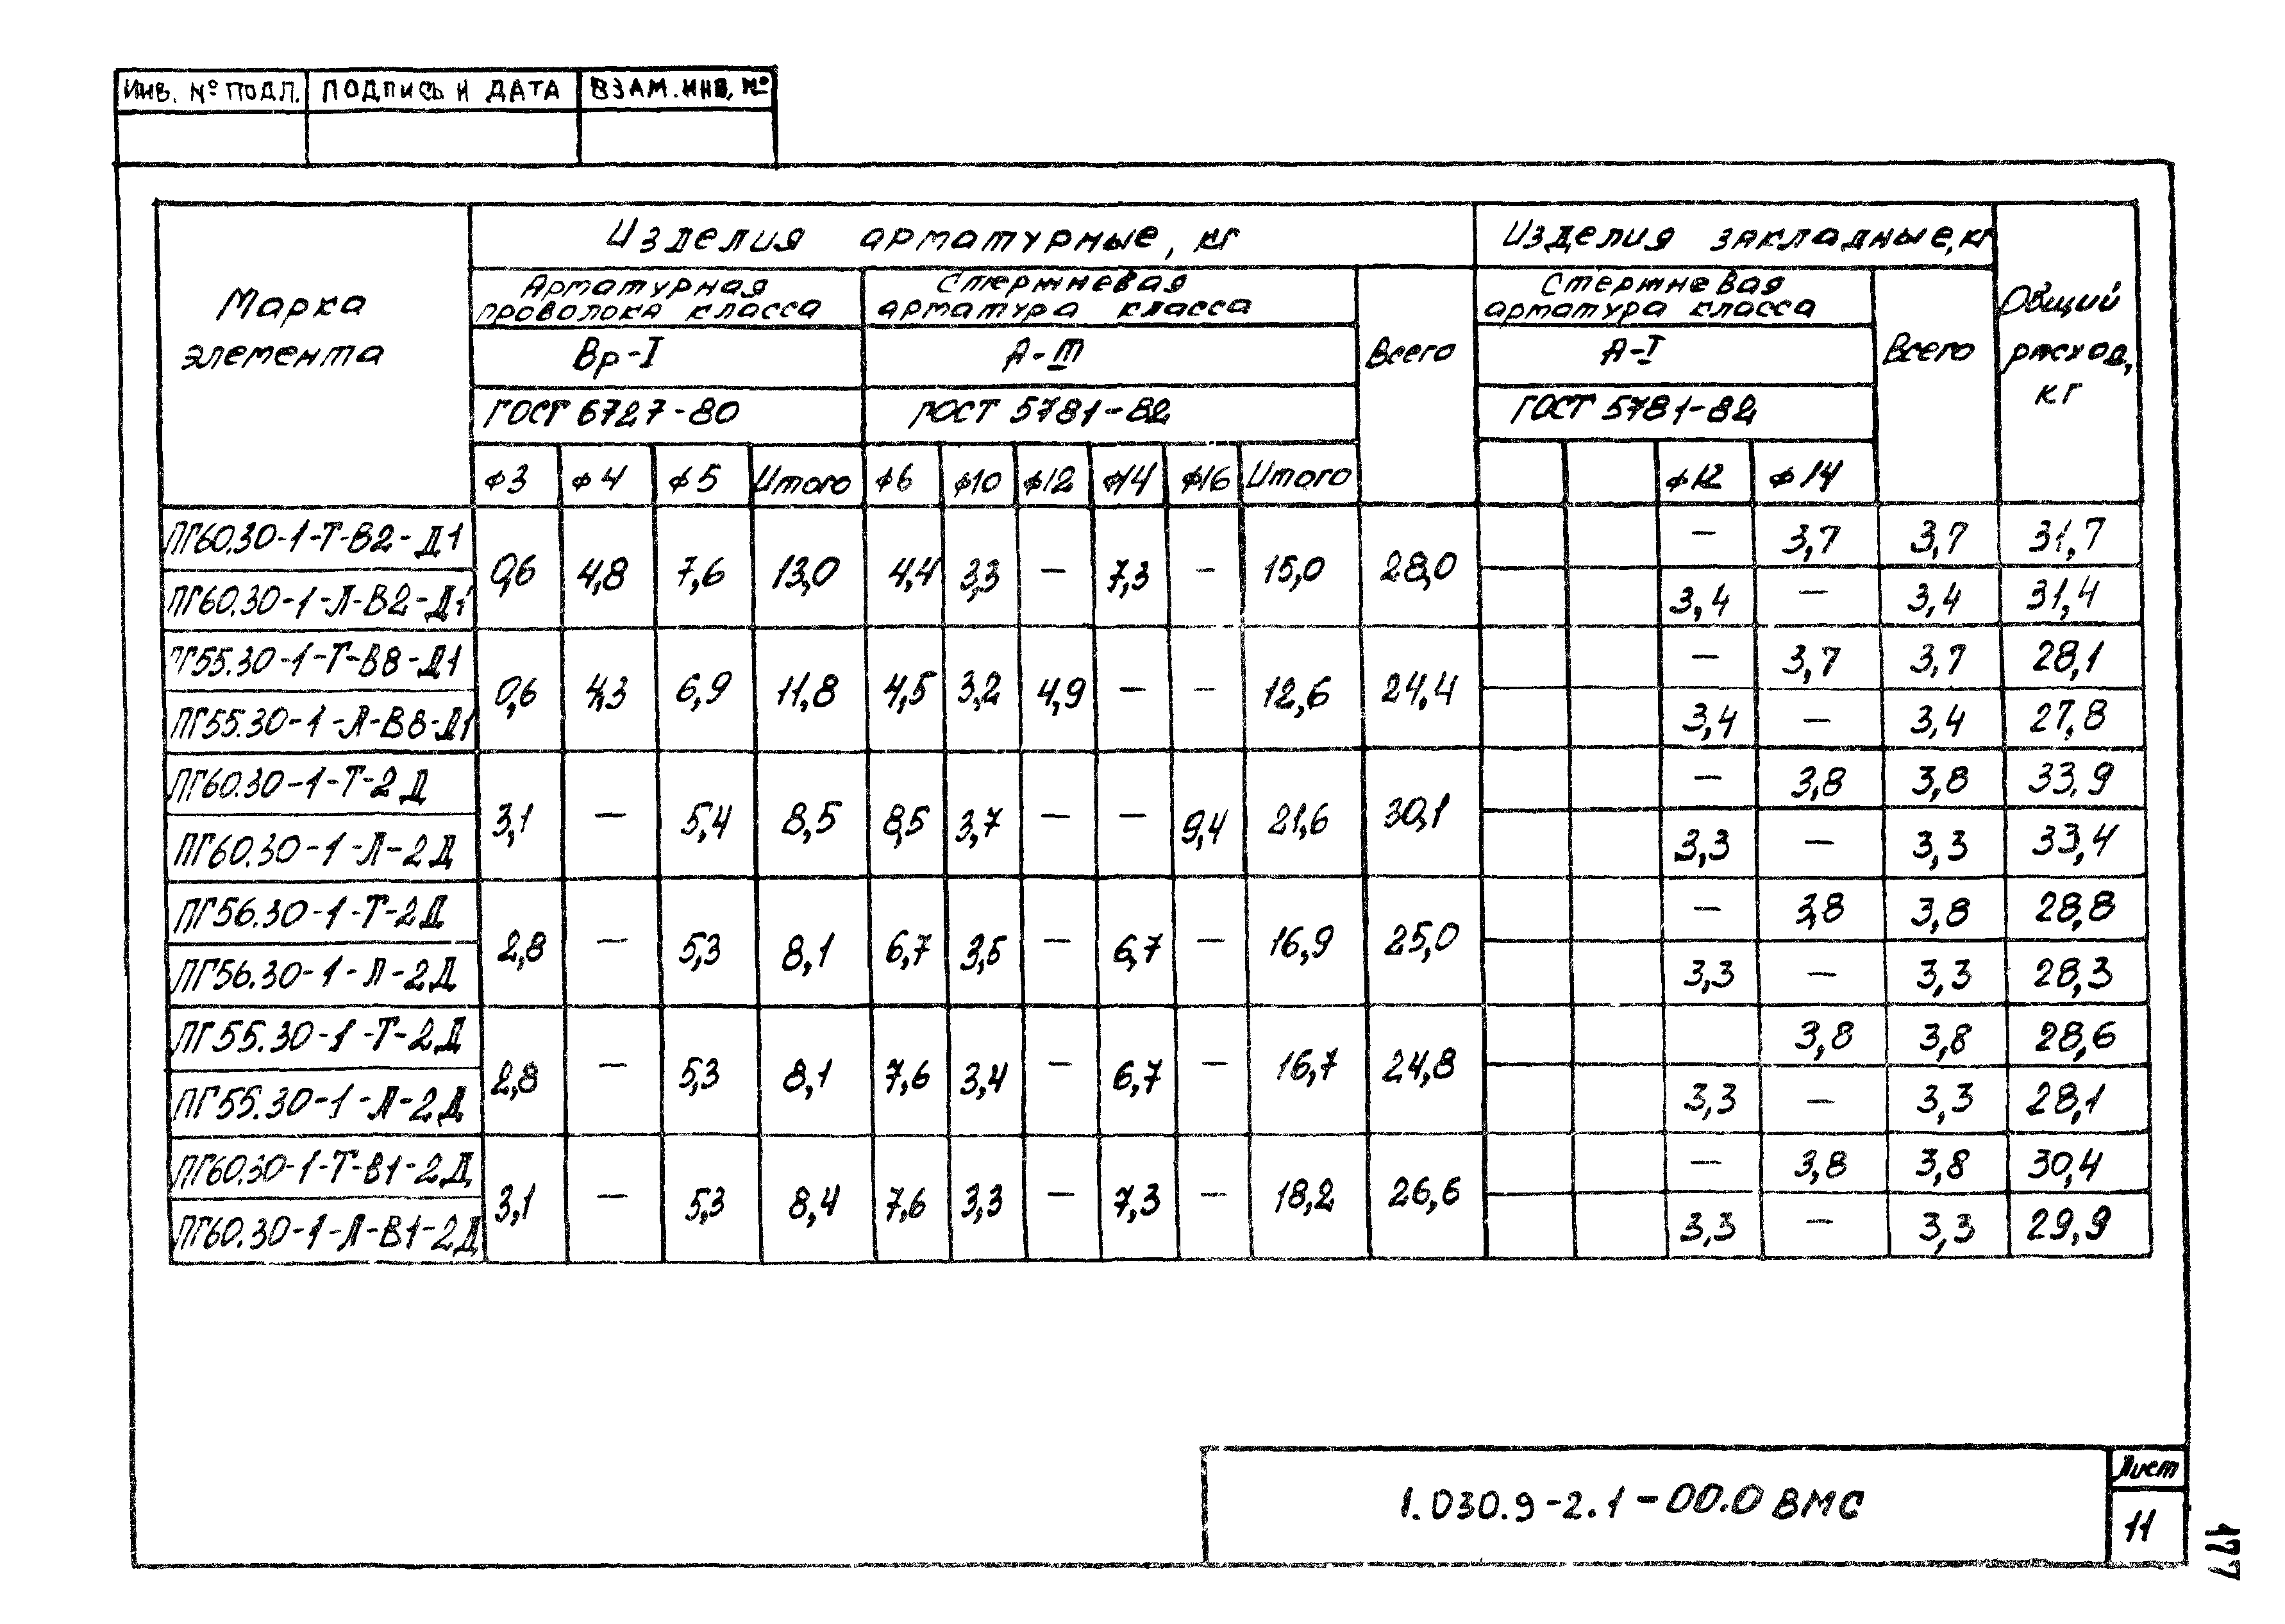 ИНВ. № ПОДЛ. ПОДПИСЬ И ДАТА ВЗАМ. ИНВ. №
Марка элемента Изделия арматурные, кг Изделия закладные, кг Общий расход, кг
Арматурная проволока класса Стержневая арматура класса Всего Стержневая арматура класса Всего
Вр-I А-III А-I
ГОСТ 6727-80 ГОСТ 5781-82 ГОСТ 5781-82
ф3 ф4 ф5 Итого ф6 ф10 ф12 ф14 ф16 Итого ф12 ф14
ПГ60.30-1-Т-В2-Д1 0,6 4,8 7,6 13,0 4,4 3,3 — 7,3 — 15,0 28,0 — 3,7 3,7 31,7
ПГ60.30-1-Л-В2-Д1 3,4 — 3,4 31,4
ПГ55.30-1-Т-В8-Д1 0,6 4,3 6,9 11,8 4,5 3,2 4,9 — — 12,6 24,4 — 3,7 3,7 28,1
ПГ55.30-1-Л-В8-Д1 3,4 — 3,4 27,8
ПГ60.30-1-Т-2Д 3,1 — 5,4 8,5 8,5 3,7 — — 9,4 21,6 30,1 — 3,8 3,8 33,9
ПГ60.30-1-Л-2Д 3,3 — 3,3 33,4
ПГ56.30-1-Т-2Д 2,8 — 5,3 8,1 6,7 3,5 — 6,7 — 16,9 25,0 — 3,8 3,8 28,8
ПГ56.30-1-Л-2Д 3,3 — 3,3 28,3
ПГ55.30-1-Т-2Д 2,8 — 5,3 8,1 7,6 3,4 — 6,7 — 16,7 24,8 3,8 3,8 28,6
ПГ55.30-1-Л-2Д 3,3 — 3,3 28,1
ПГ60.30-1-Т-В1-2Д 3,1 — 5,3 8,4 7,6 3,3 — 7,3 — 18,2 26,6 — 3,8 3,8 30,4
ПГ60.30-1-Л-В1-2Д 3,3 — 3,3 29,9
1.030.9-2.1-00.0 ВМС
Лист
11
177